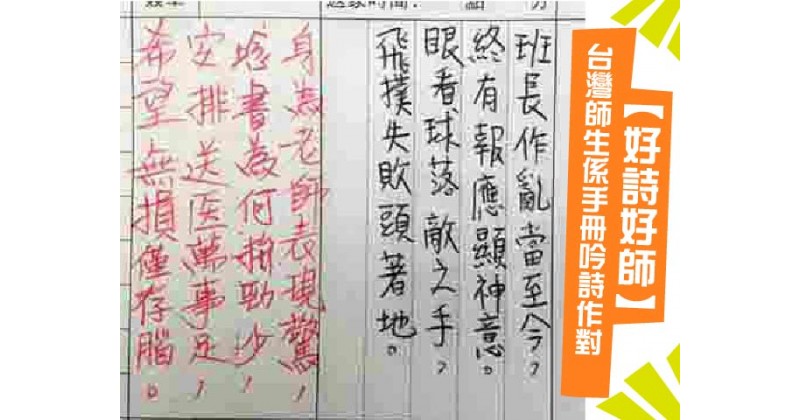 家時間： 點 分
【好詩好師】
台灣師生係手冊吟詩作對
班長作亂當至今，
終有報應顯神意。
眼看球落敵之手，
飛撲失敗頭著地。
身為老師表現驚，
唸書為何勁少，
安排送医萬事足，
希望無損僅存腦。